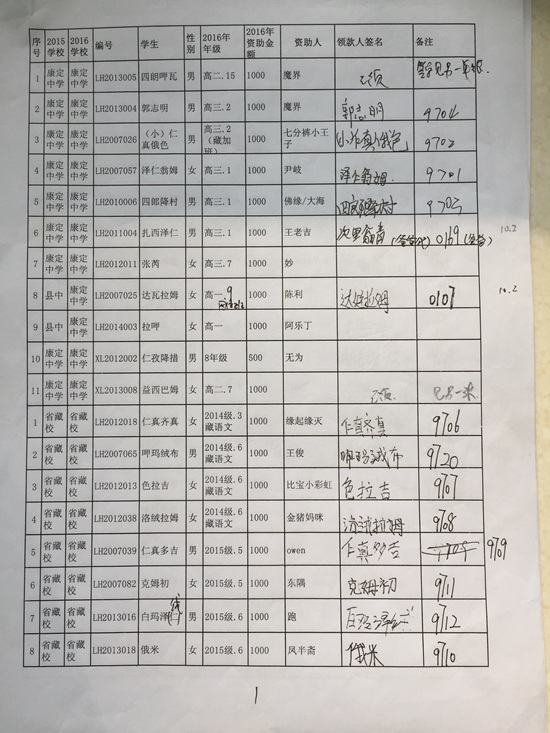 序号 2015学校 2016学校 编号 学生 性别 2016年年级 2016年资助金额 资助人 领款人签名 备注
1 康定中学 康定中学 LH2013005 四朗呷瓦 男 高二.15 1000 魔界 已领
2 康定中学 康定中学 LH2013004 郭志明 男 高三.2 1000 魔界 郭志明 9704
3 康定中学 康定中学 LH2007026 （小）仁真俄色 男 高三.2（藏加班） 1000 七分裤小王子 小仁真俄色 9702
4 康定中学 康定中学 LH2007057 泽仁翁姆 女 高三.1 1000 尹岐 泽仁翁姆 9701
5 康定中学 康定中学 LH2010006 四郎降村 男 高三.1 1000 佛缘/大海 四郎降村 9703
6 康定中学 康定中学 LH2011004 扎西泽仁 男 高三.1 1000 王老吉 0169 10.2
7 康定中学 康定中学 LH2012011 张芮 女 高三.7 1000 妙
8 县中 康定中学 LH2007025 达瓦拉姆 女 高一 9 1000 陈利 达娃拉姆 0107 10.2
9 县中 康定中学 LH2014003 拉呷 女 高一 1000 阿乐丁
10 康定中学 康定中学 XL2012002 仁孜降措 男 8年级 500 无为
11 康定中学 康定中学 XL2013008 益西巴姆 女 高二.7 1000 已领
1 省藏校 省藏校 LH2012018 仁真齐真 女 2014级.3藏语文 1000 缘起缘灭 仁真齐真 9706
2 省藏校 省藏校 LH2007065 呷玛绒布 男 2014级.6藏语文 1000 王俊 呷玛绒布 9720
3 省藏校 省藏校 LH2012013 色拉吉 女 2014级.6藏语文 1000 比宝小彩虹 色拉吉 9707
4 省藏校 省藏校 LH2012038 洛绒拉姆 女 2014级.6藏语文 1000 金猪妈咪 洛绒拉姆 9708
5 省藏校 省藏校 LH2007039 仁真多吉 男 2015级.5 1000 owen 仁真多吉 9709
6 省藏校 省藏校 LH2007082 克姆初 女 2015级.5 1000 东隅 克姆初 9711
7 省藏校 省藏校 LH2013016 白玛泽仁 男 2015级.6 1000 跑 9712
8 省藏校 省藏校 LH2013018 俄米 女 2015级.6 1000 凤半斋 俄米 9710
1